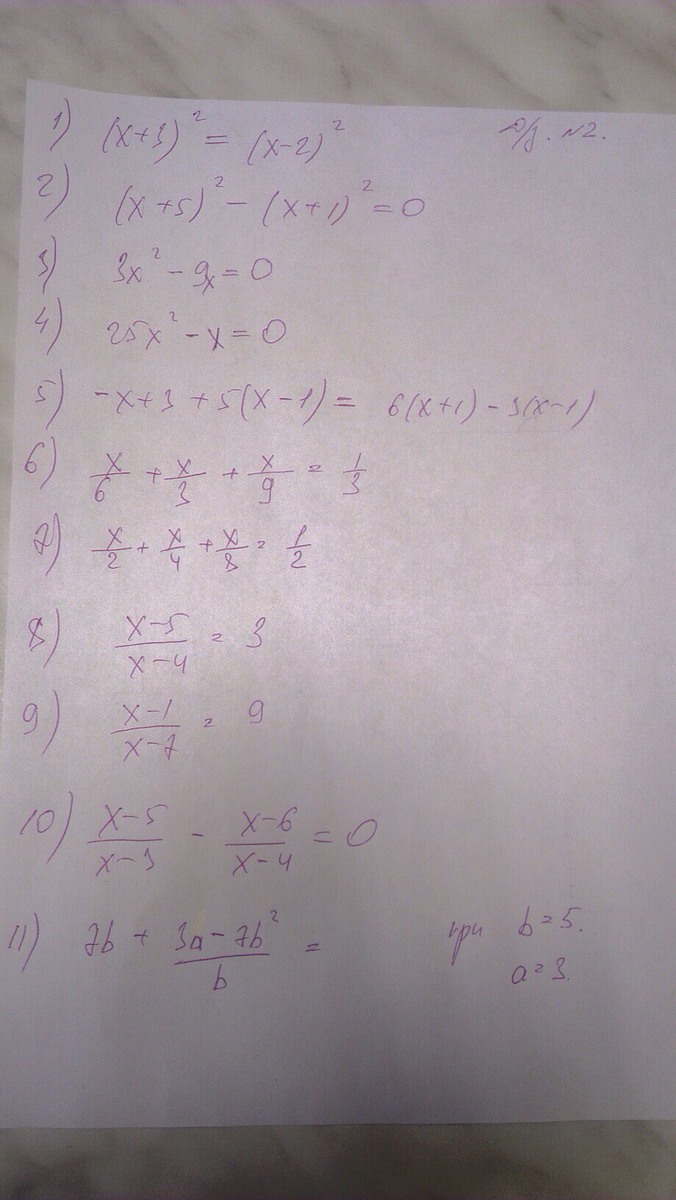 Д/з. №2.
1) (x+3)² = (x-2)²
2) (x+5)² - (x+1)² = 0
3) 3x² - 9x = 0
4) 25x² - x = 0
5) -x+3+5(x-1) = 6(x+1) - 3(x-1)
6) x/6 + x/3 + x/9 = 1/3
7) x/2 + x/4 + x/8 = 1/2
8) x-5/x-4 = 3
9) x-1/x-7 = 9
10) x-5/x-3 - x-6/x-4 = 0
11) 7b + 3a-7b²/b = при b=5.
a=3.